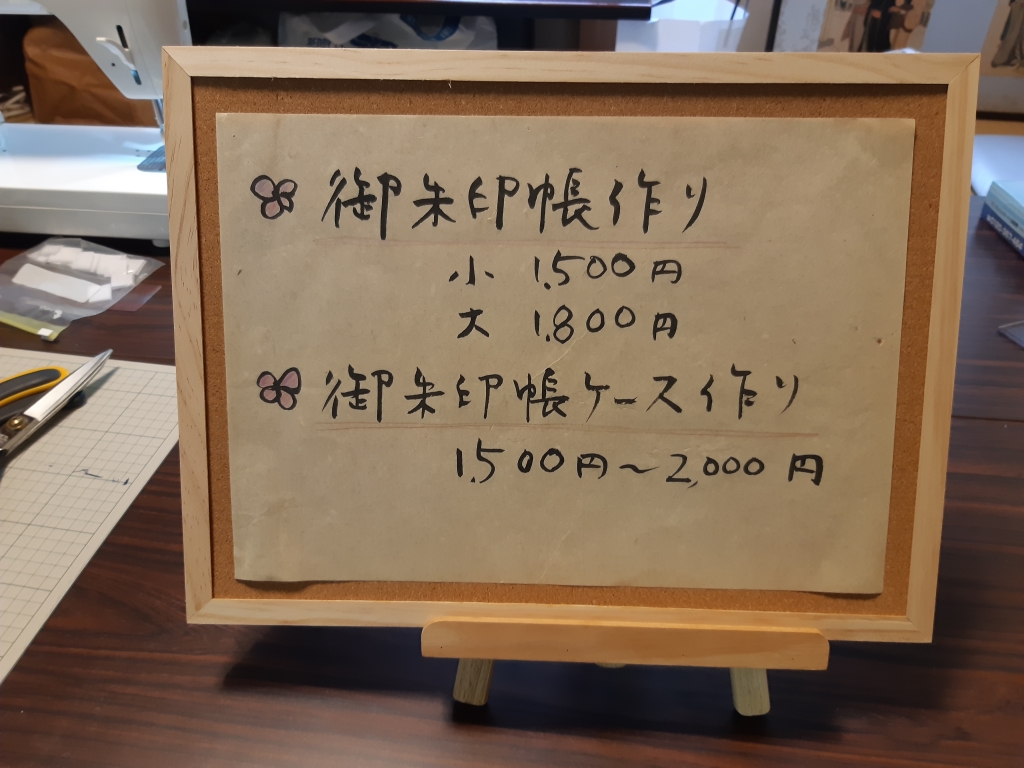 御朱印帳作り
小 1,500円
大 1,800円
御朱印帳ケース作り
1,500円～2,000円